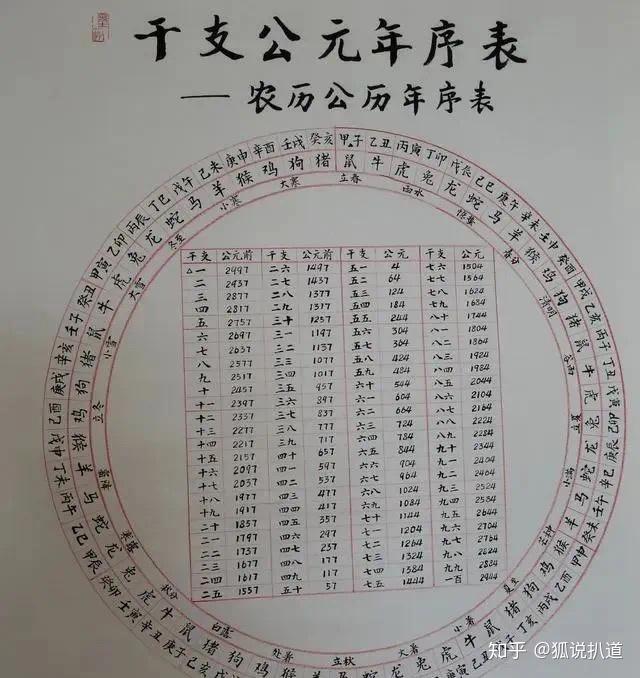 干支公元年序表
——农历公历年序表
甲子 乙丑 丙寅 丁卯 戊辰 己巳 庚午 辛未 壬申 癸酉 甲戌 乙亥 丙子 丁丑 戊寅 己卯 庚辰 辛巳 壬午 癸未 甲申 乙酉 丙戌 丁亥
庚子 辛丑 壬寅 癸卯 甲辰 乙巳 丙午 丁未 戊申 己酉 庚戌 辛亥 壬子 癸丑 甲寅 乙卯 丙辰 丁巳 戊午 己未 庚申 辛酉 壬戌 癸亥
鼠 牛 虎 兔 龙 蛇 马 羊 猴 鸡 狗 猪 鼠 牛 虎 兔 龙 蛇 马 羊 猴 鸡 狗 猪 鼠 牛 虎 兔 龙 蛇 马 羊 猴 鸡 狗 猪 鼠 牛 虎 兔 龙 蛇 马 羊 猴 鸡 狗 猪 鼠 牛 虎 兔 龙 蛇 马 羊 猴 鸡 狗 猪
立春 雨水 惊蛰 春分 清明 谷雨 立夏 小满 芒种 夏至 小暑 大暑 立秋 处暑 白露 秋分 寒露 霜降 立冬 小雪 大雪 冬至 小寒 大寒
干支 公元前 干支 公元前 干支 公元 干支 公元
△一 2997 二六 1497 五一 4 七六 1504
二 2937 二七 1437 五二 64 七七 1564
三 2877 二八 1377 五三 124 七八 1624
四 2817 二九 1317 五四 184 七九 1684
五 2757 三十 1257 五五 244 八十 1744
六 2697 三一 1197 五六 304 八一 1804
七 2637 三二 1137 五七 364 八二 1864
八 2577 三三 1077 五八 424 八三 1924
九 2517 三四 1017 五九 484 八四 1984
十 2457 三五 957 六十 544 八五 2044
十一 2397 三六 897 六一 604 八六 2104
十二 2337 三七 837 六二 664 八七 2164
十三 2277 三八 777 六三 724 八八 2224
十四 2217 三九 717 六四 784 八九 2284
十五 2157 四十 657 六五 844 九十 2344
十六 2097 四一 597 六六 904 九一 2404
十七 2037 四二 537 六七 964 九二 2464
十八 1977 四三 477 六八 1024 九三 2524
十九 1917 四四 417 六九 1084 九四 2584
二十 1857 四五 357 七十 1144 九五 2644
二一 1797 四六 297 七一 1204 九六 2704
二二 1737 四七 237 七二 1264 九七 2764
二三 1677 四八 177 七三 1324 九八 2824
二四 1617 四九 117 七四 1384 九九 2884
二五 1557 五十 57 七五 1444 一百 2944
知乎 @狐说扒道